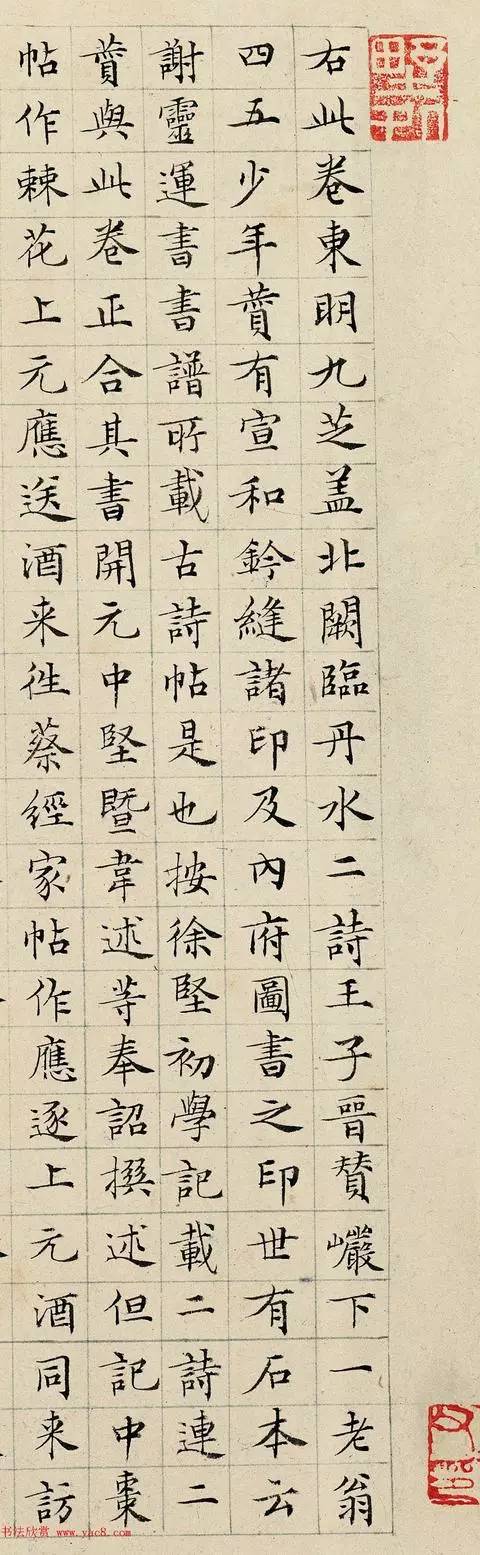 右此卷東明九芝盖北闕臨丹水二詩王子晉賛巖下一老翁
四五少年賛有宣和鈐縫諸印及內府圖書之印世有石本云
謝靈運書書譜所載古詩帖是也按徐堅初學記載二詩連二
賛與此卷正合其書開元中堅暨韋述等奉詔撰述但記中棗
帖作棘花上元應送酒来徃蔡經家帖作應逐上元酒同来訪
书法欣赏 www.yac8.com